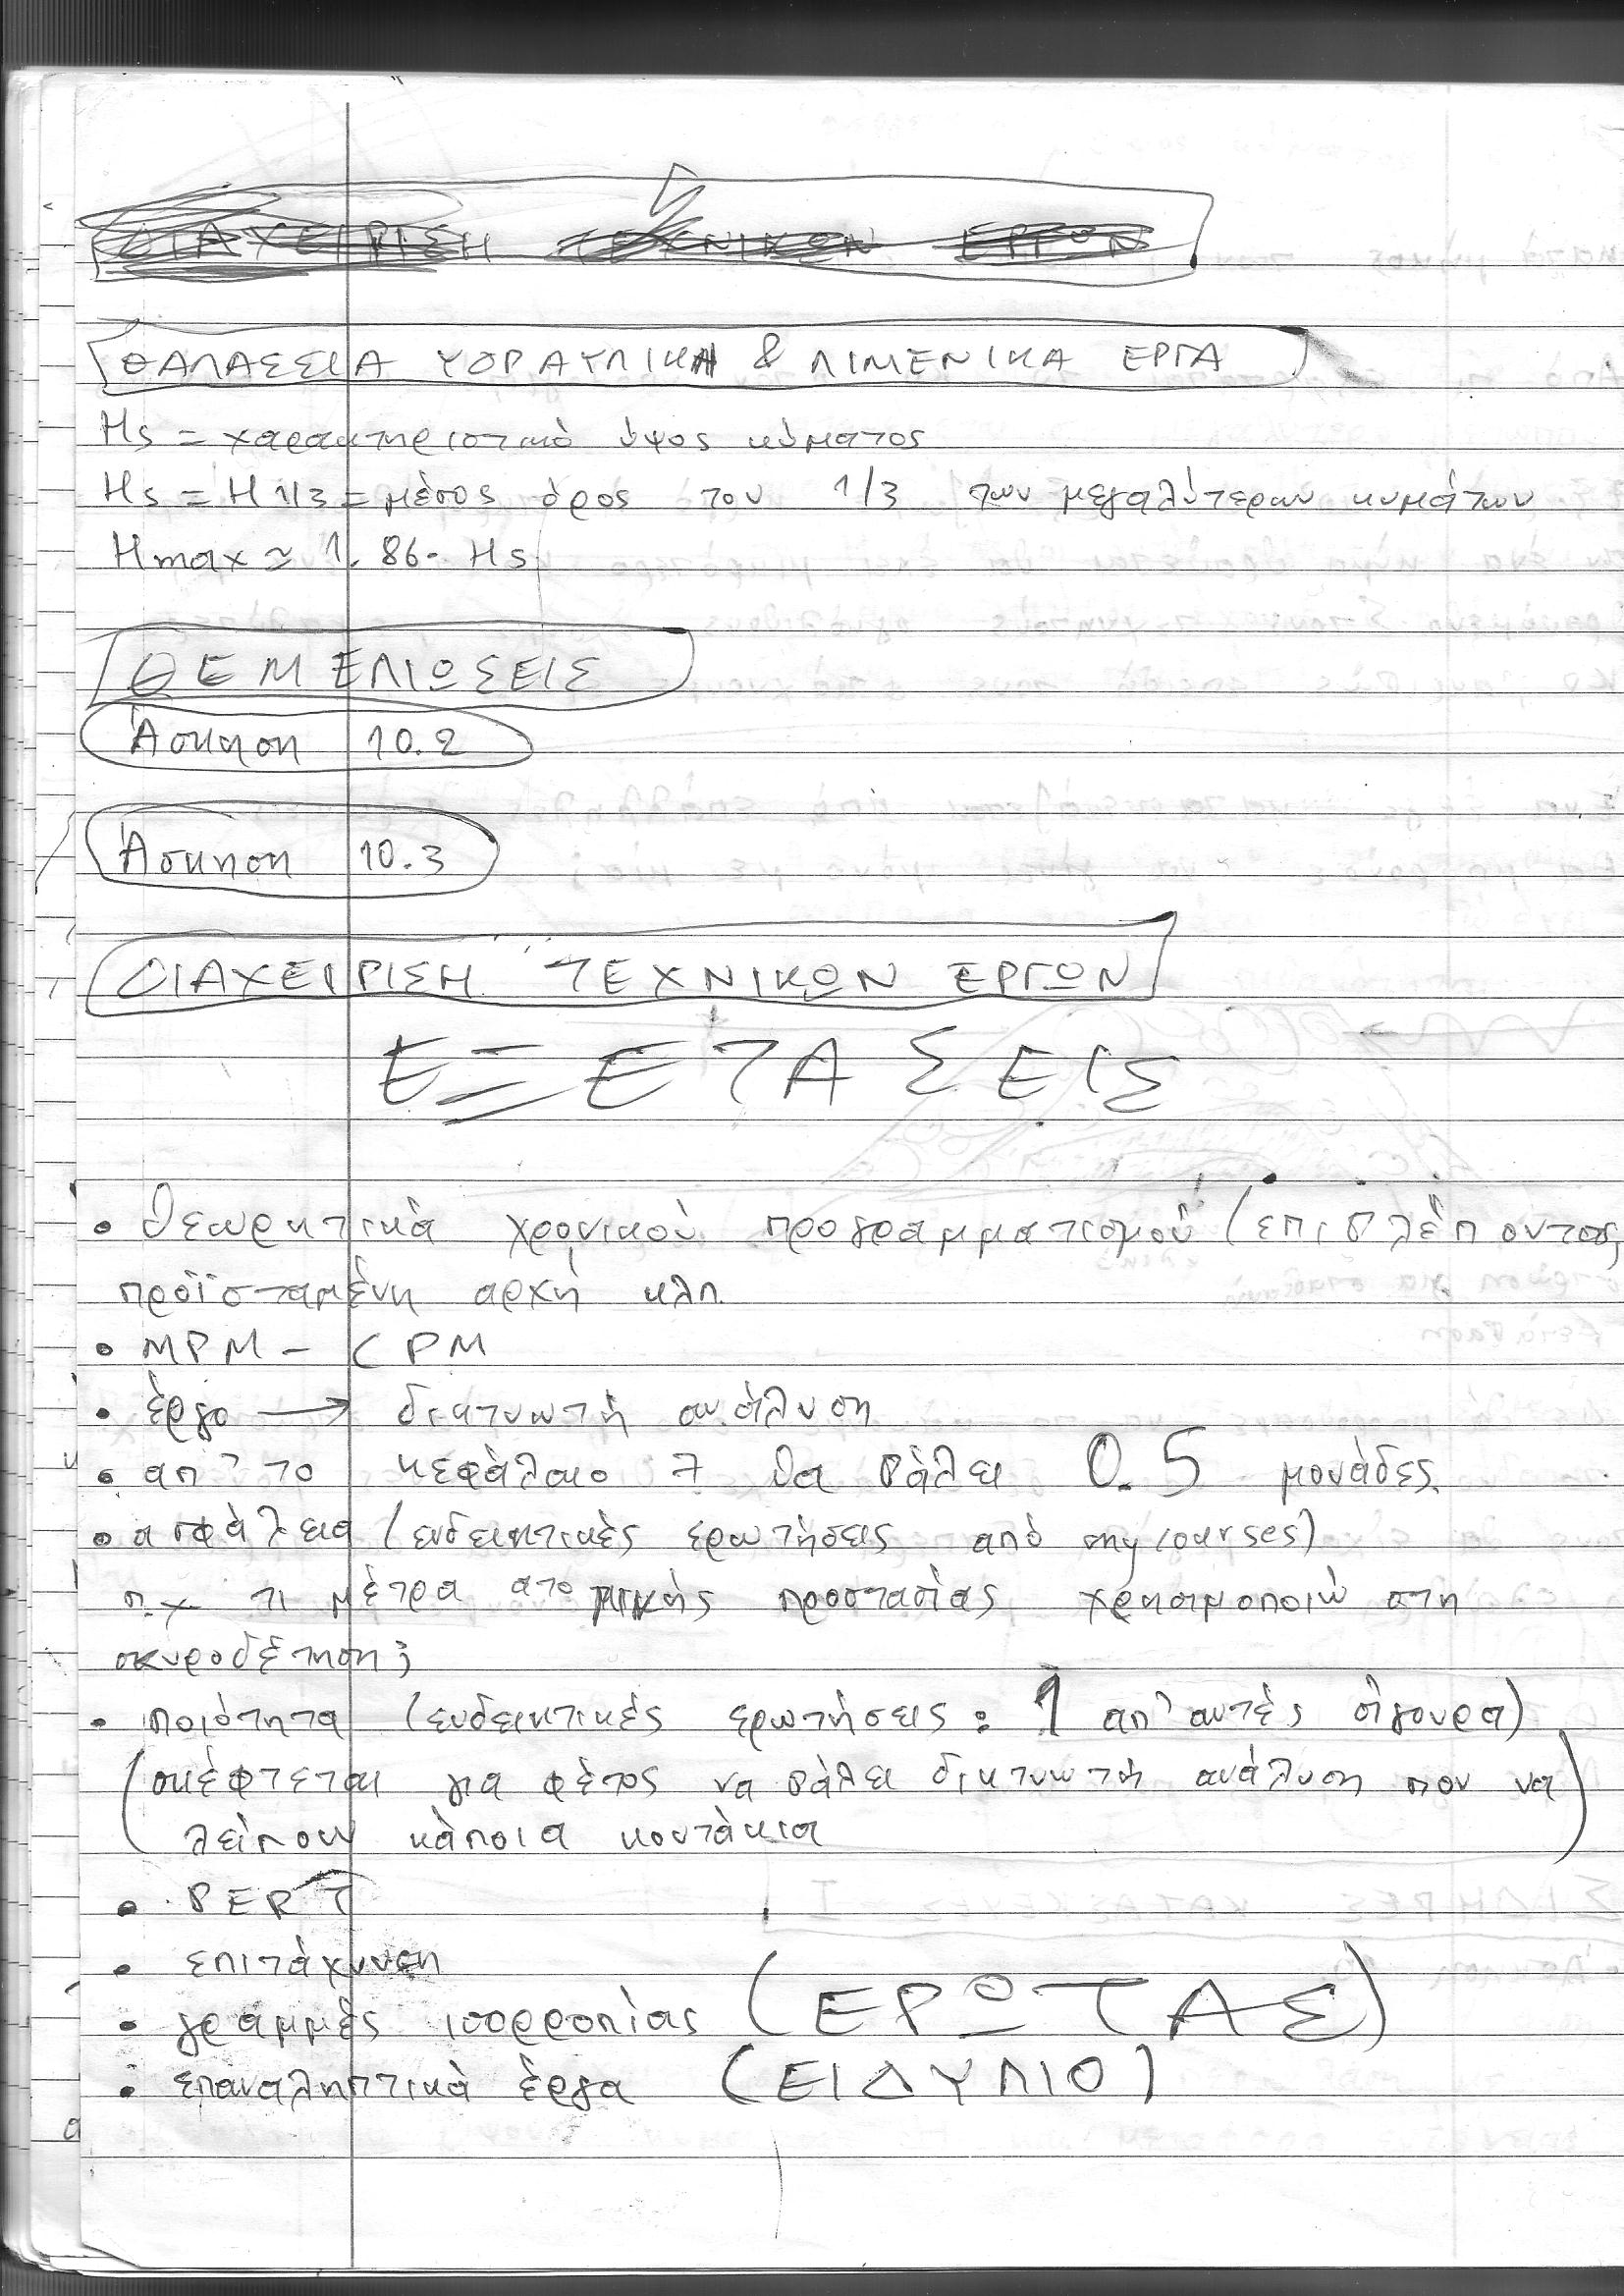 ΔΙΑΧΕΙΡΙΣΗ ΤΕΧΝΙΚΩΝ ΕΡΓΩΝ
ΘΑΛΑΣΣΙΑ ΥΔΡΑΥΛΙΚΗ & ΛΙΜΕΝΙΚΑ ΕΡΓΑ
Hs = χαρακτηριστικό ύψος κύματος
Hs = H1/3 = μέσος όρος του 1/3 των μεγαλύτερων κυμάτων
Hmax ≃ 1.86· Hs
ΘΕΜΕΛΙΩΣΕΙΣ
Άσκηση 10.2
Άσκηση 10.3
ΔΙΑΧΕΙΡΙΣΗ ΤΕΧΝΙΚΩΝ ΕΡΓΩΝ
ΕΞΕΤΑΣΕΙΣ
• θεωρητικά χρονικού προγραμματισμού (επιβλέποντας,
προϊσταμένη αρχή κλπ
• MPM - CPM
• έργο → δικτυωτή ανάλυση
• απ' το κεφάλαιο 7 θα βάλει 0.5 μονάδες.
• ασφάλεια (ενδεικτικές ερωτήσεις από mycourses)
π.χ τι μέτρα ατομικής προστασίας χρησιμοποιώ στη
σκυροδέτηση;
• ποιότητα (ενδεικτικές ερωτήσεις: 1 απ' αυτές σίγουρα)
(σκέφτεται για φέτος να βάλει δικτυωτή ανάλυση που να
λείπουν κάποια κουτάκια)
• PERT
• επιτάχυνση
• γραμμές ισορροπίας (ΕΡΩΤΑΣ)
• επαναληπτικά έργα (ΕΙΔΥΛΙΟ)